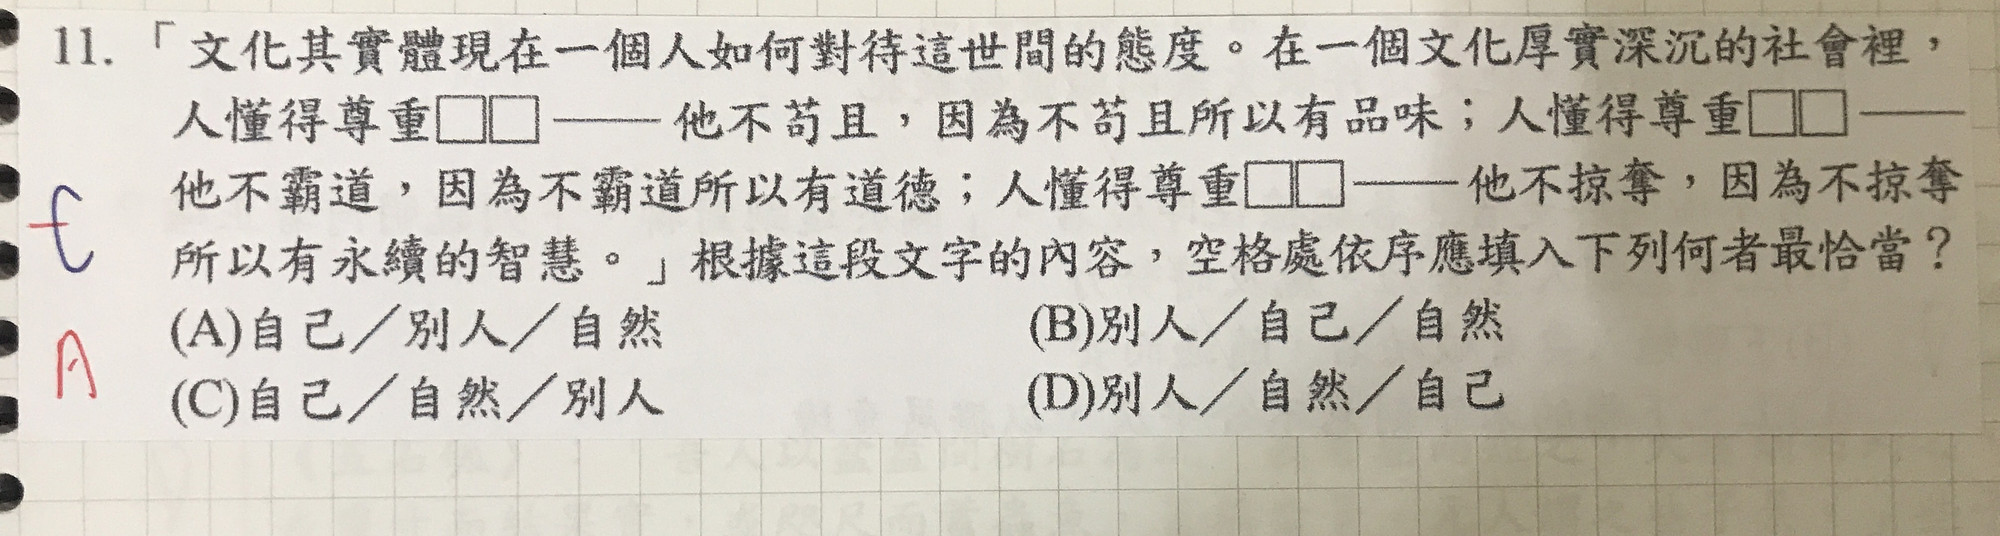 11.「文化其實體現在一個人如何對待這世間的態度。在一個文化厚實深沉的社會裡，
人懂得尊重□□——他不苟且，因為不苟且所以有品味；人懂得尊重□□——
他不霸道，因為不霸道所以有道德；人懂得尊重□□——他不掠奪，因為不掠奪
所以有永續的智慧。」根據這段文字的內容，空格處依序應填入下列何者最恰當？
(A)自己／別人／自然 (B)別人／自己／自然
A
(C)自己／自然／別人 (D)別人／自然／自己